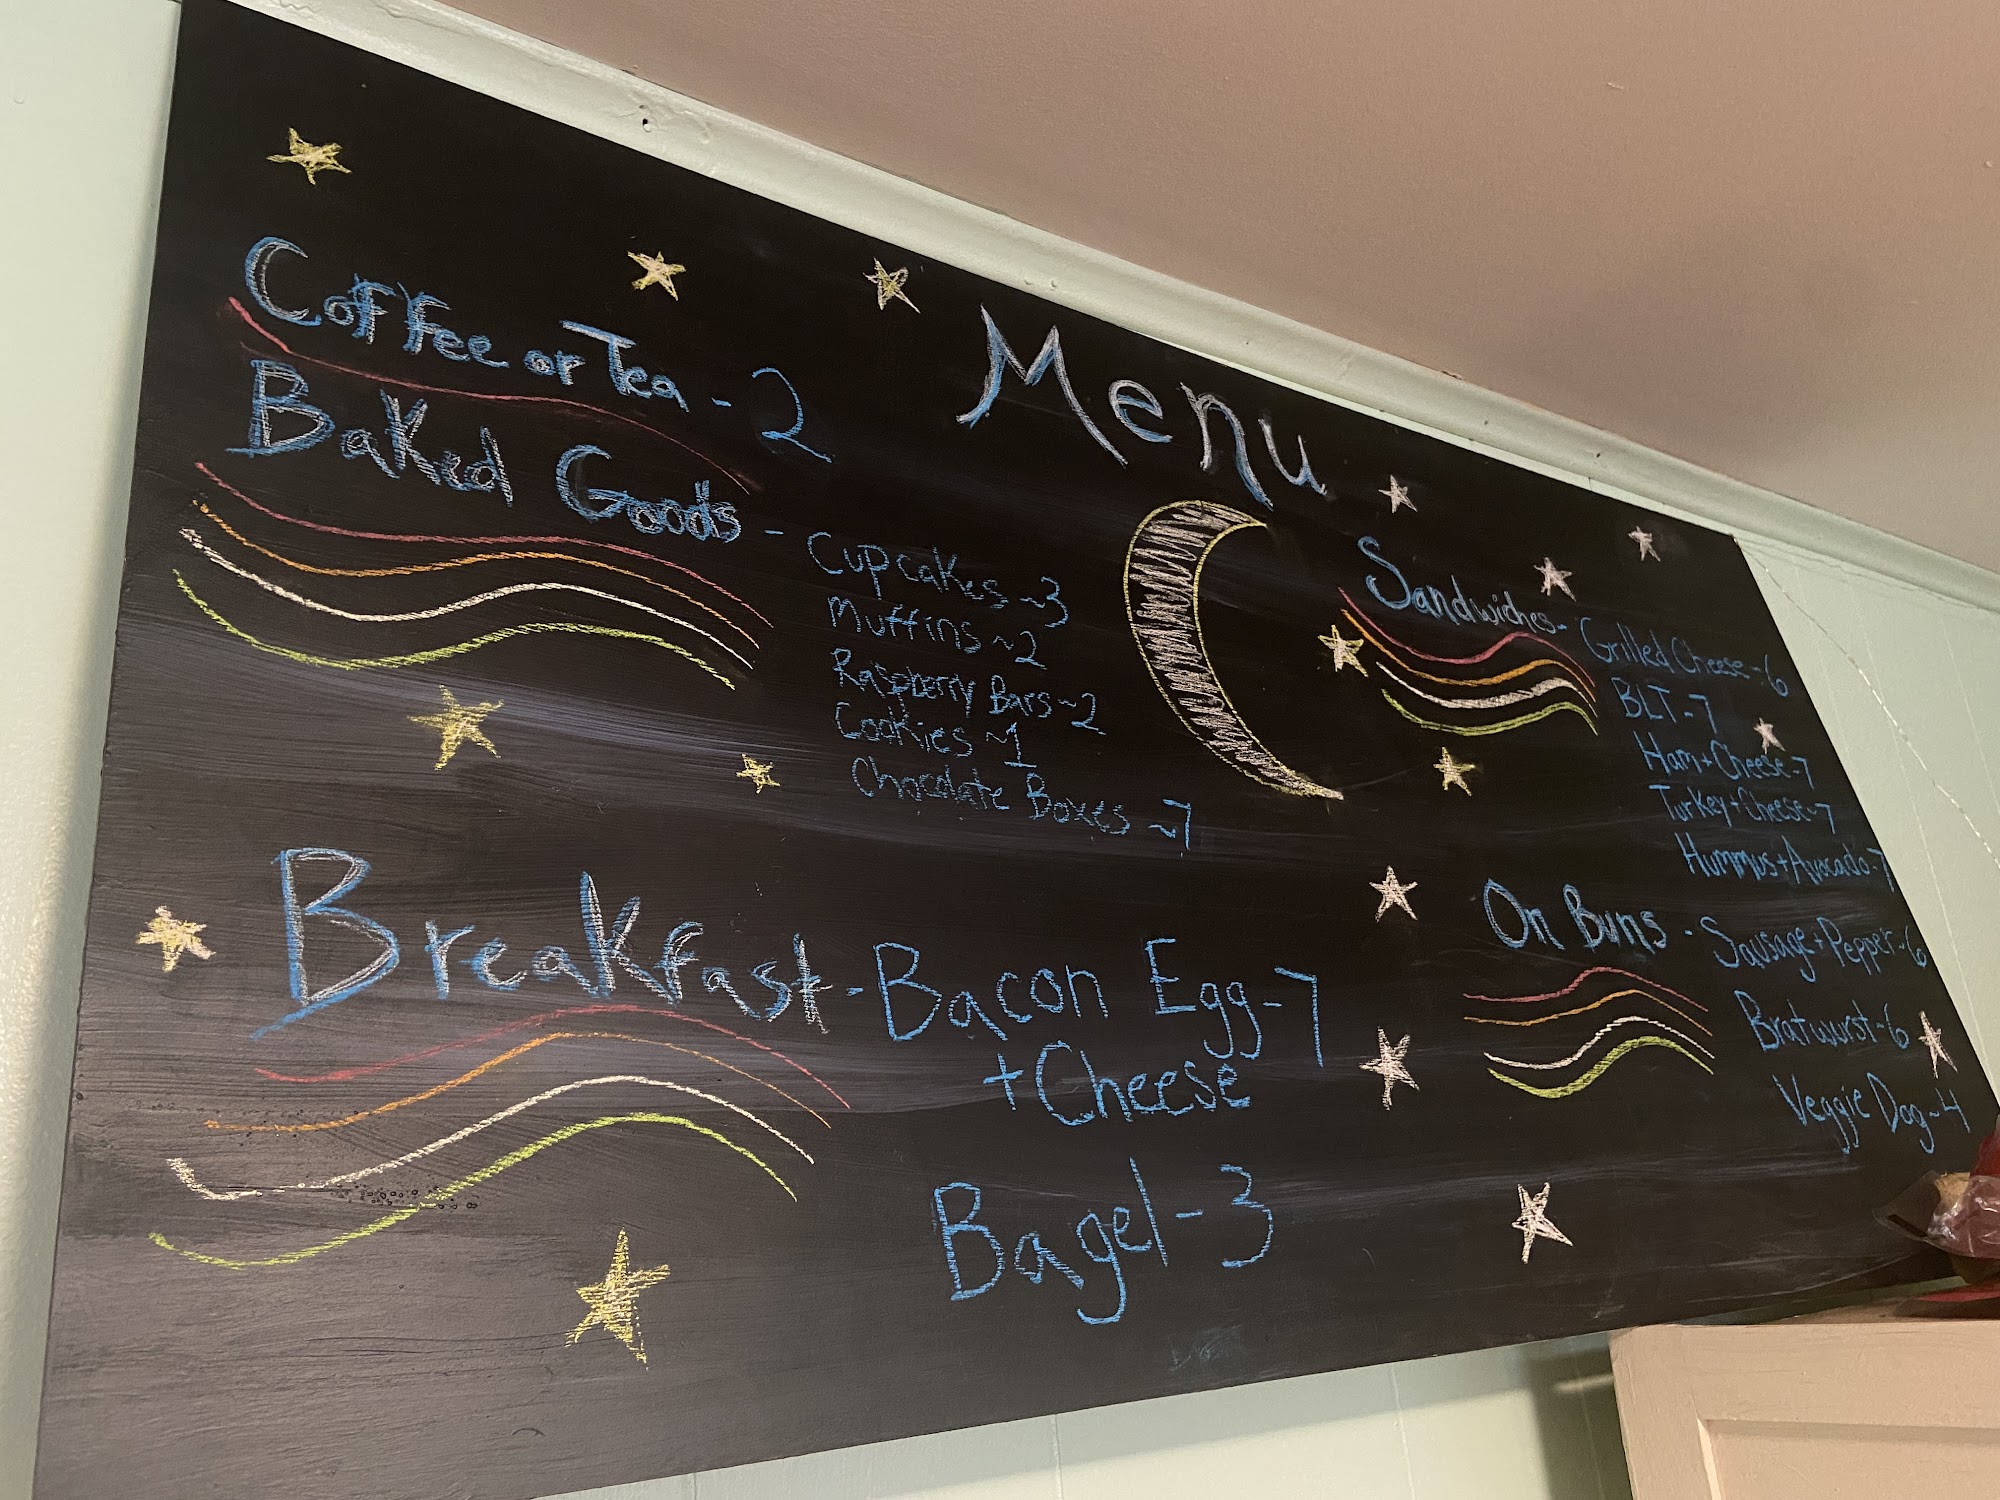 Menu
Coffee or Tea - 2
Baked Goods -
Cupcakes ~3
Muffins ~2
Raspberry Bars ~2
Cookies ~1
Chocolate Boxes ~7
Breakfast - Bacon Egg - 7
+ Cheese
Bagel - 3
Sandwiches - Grilled Cheese - 6
BLT - 7
Ham + Cheese - 7
Turkey + Cheese - 7
Hummus + Avocado - 7
On Buns - Sausage + Pepper - 6
Bratwurst - 6
Veggie Dog - 4